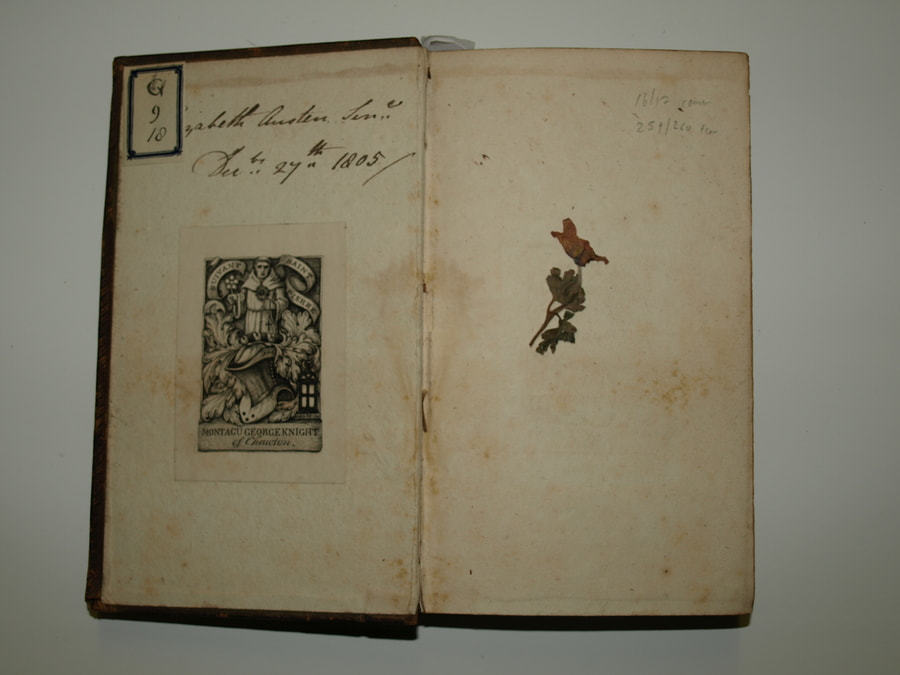 G
9
18
zabeth Austen Sen.r
Decbr. 27th 1805
SUIVANT SAINT PIERRE
MONTAGU GEORGE KNIGHT
of Chawton.
16/17
259/260